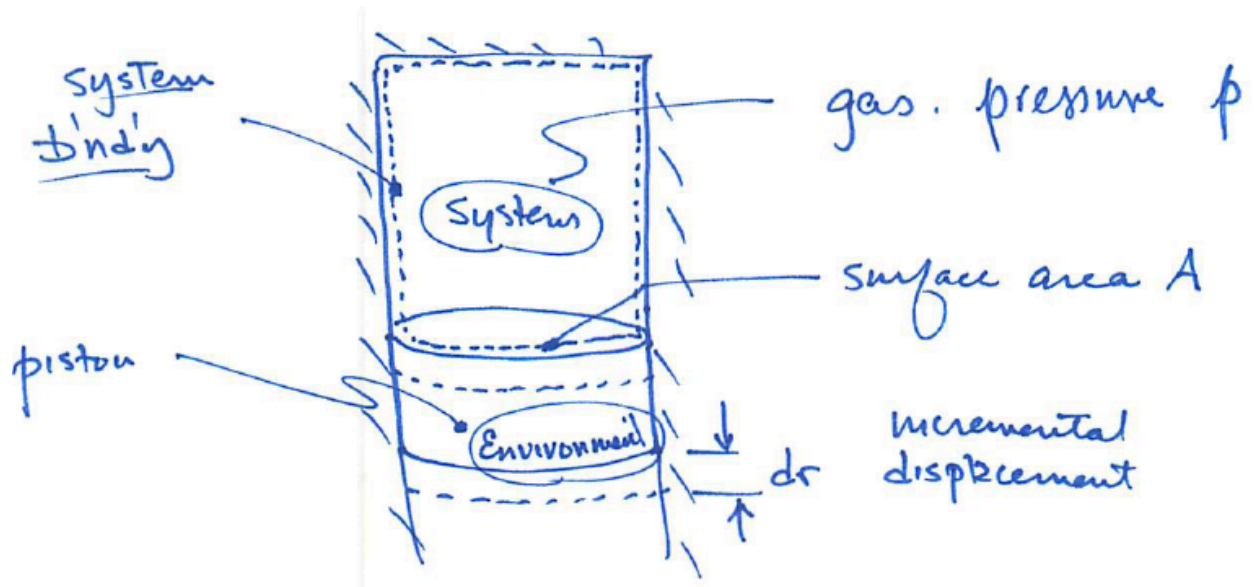 system
b'nd'y
gas. pressure p
System
surface area A
piston
Environment
dr
incremental
displacement